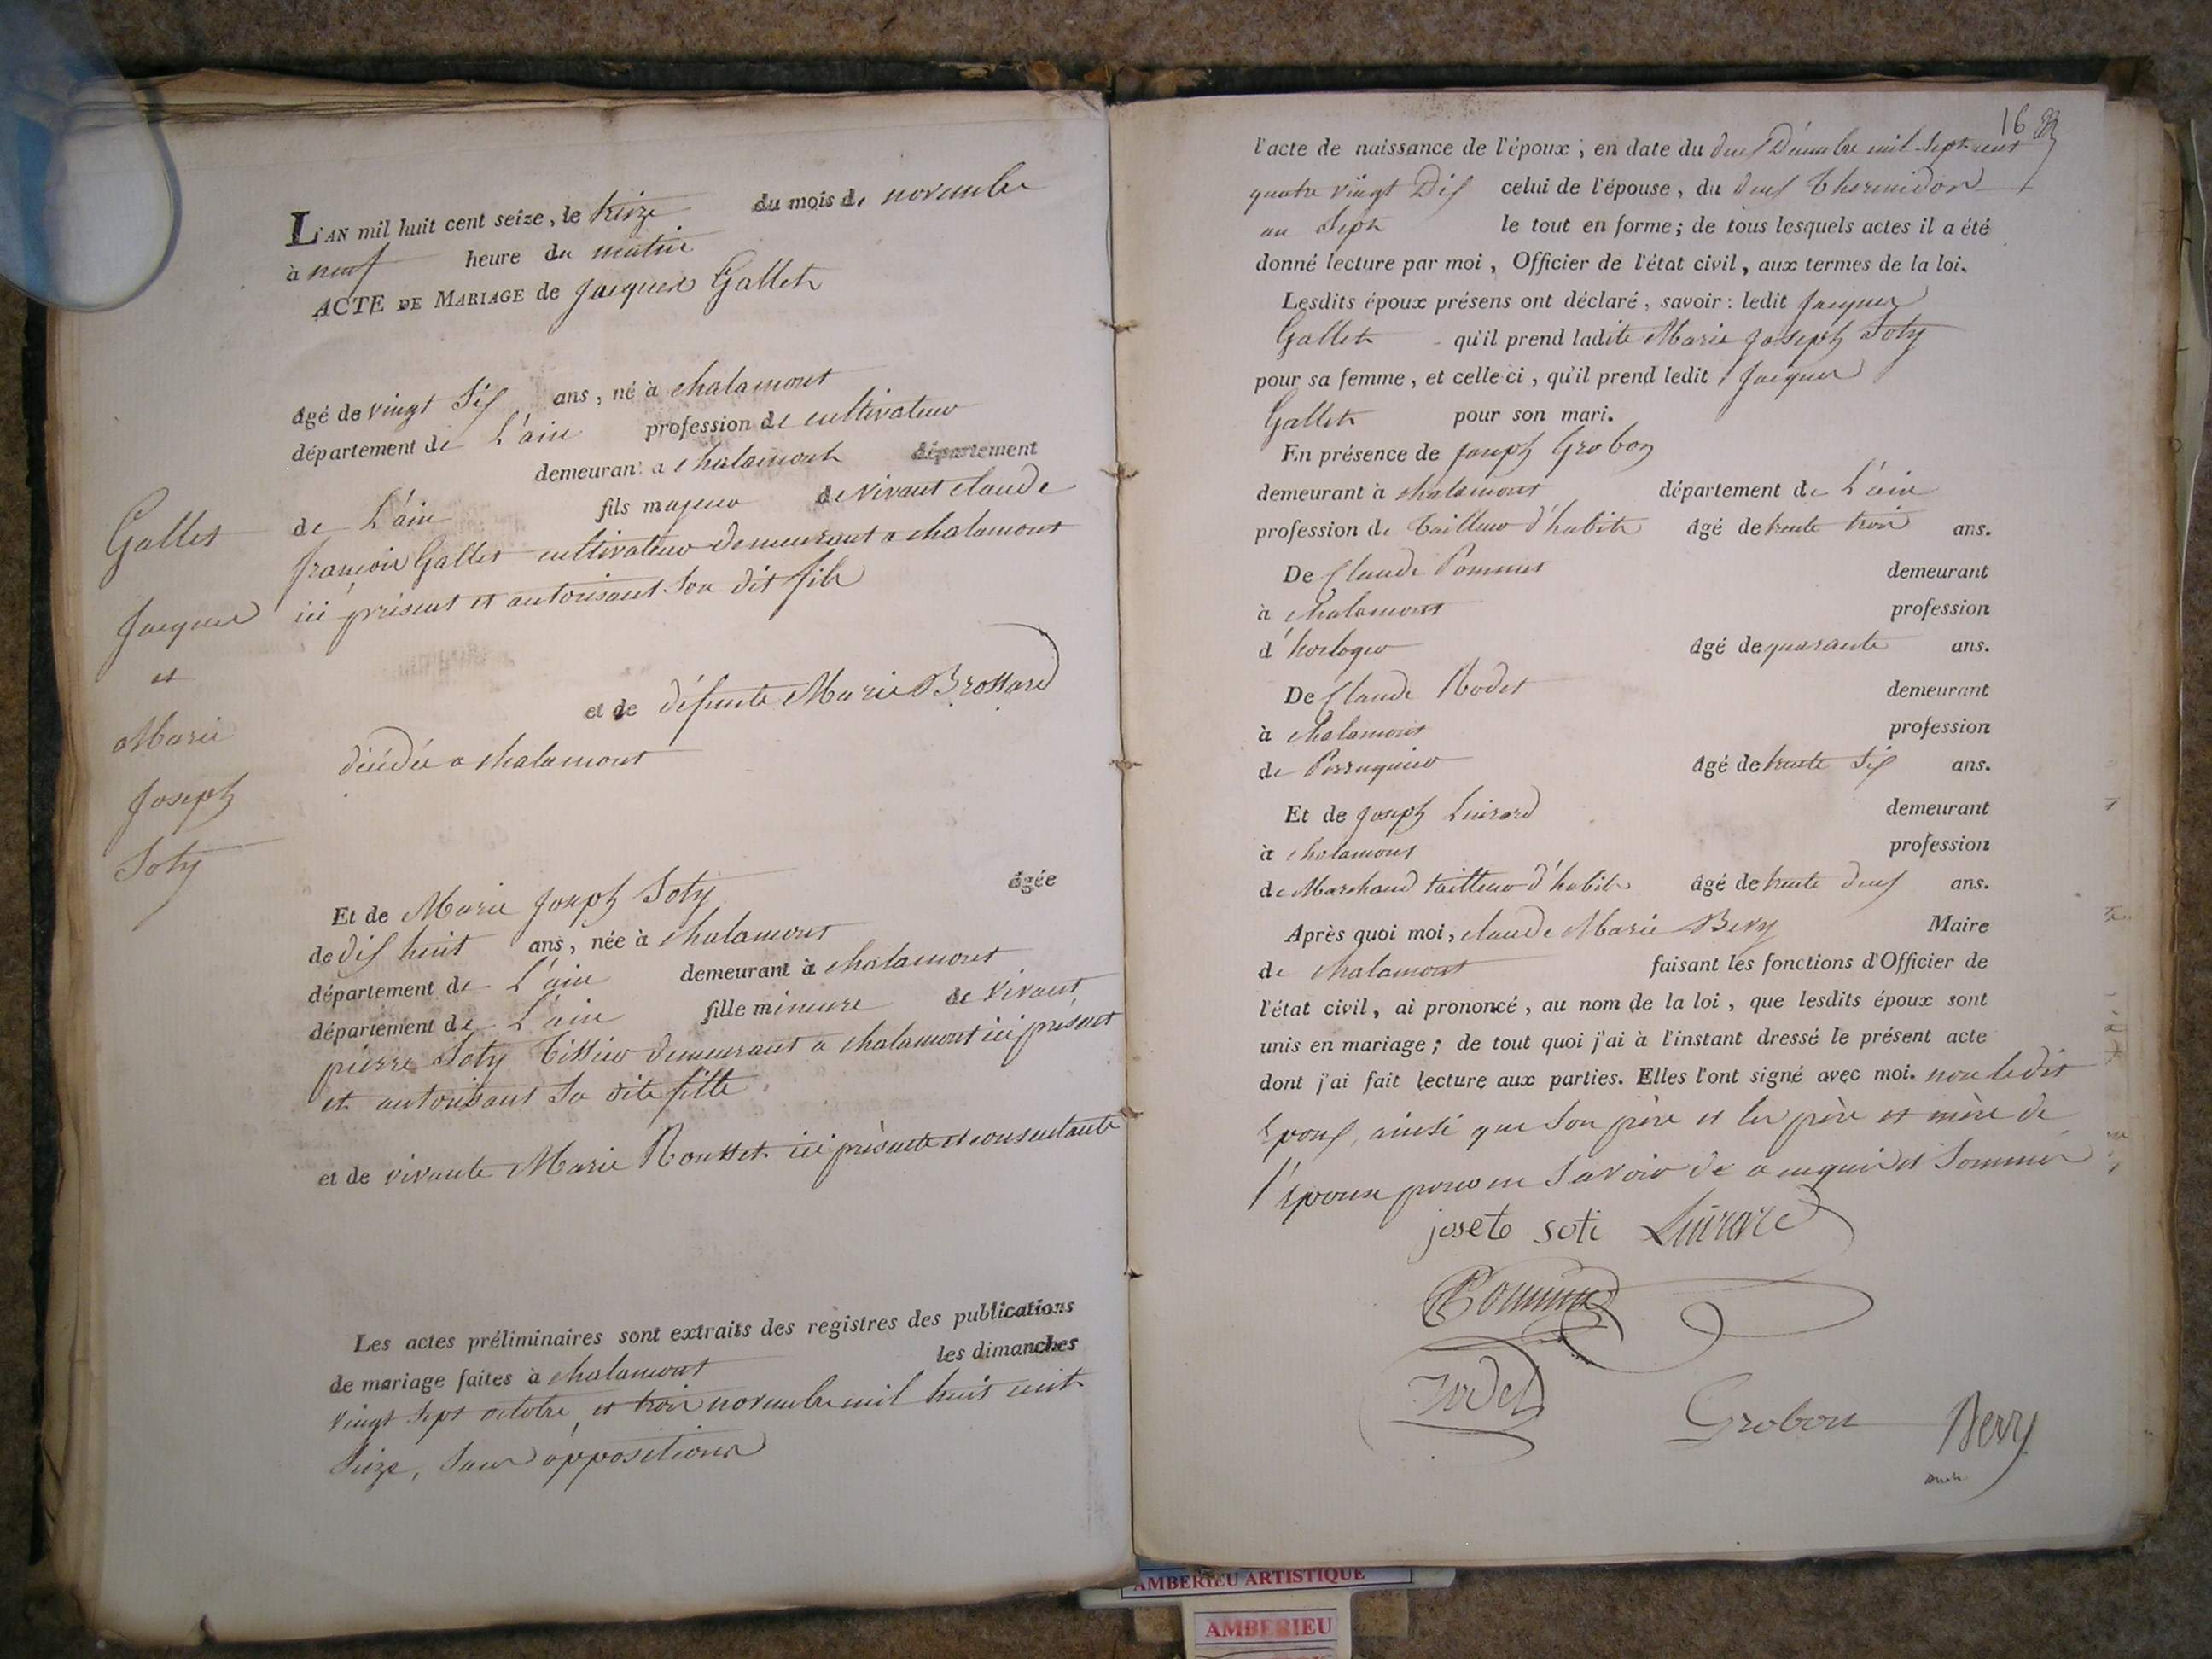 L'AN mil huit cent seize, le treize du mois de novembre
à neuf heure du matin
ACTE DE MARIAGE de Jacques Gallet
âgé de vingt Six ans, né à chalamont
département de L'ain profession de cultivateur
demeurant a chalamont département
de L'ain fils majeur de vivant claude
françois Gallet cultivateur demeurant a chalamont
ici présent et autorisant Son dit fils
et de défunte Marie Brossard
décédée a chalamont
Gallet
Jacques
et
Marie
Joseph
Soty
Et de Marie Joseph Soty âgée
de dix huit ans, née à chalamont
département de L'ain demeurant à chalamont
département de L'ain fille mineure de vivant
pierre Soty Tissier demeurant a chalamont ici présent
et autorisant Sa dite fille
et de vivante Marie Rousset ici présente et consentante
Les actes préliminaires sont extraits des registres des publications
de mariage faites à chalamont les dimanches
vingt Sept octobre et trois novembre mil huit cent
Seize, Sans oppositions
16
l'acte de naissance de l'époux ; en date du deux Décembre mil Sept cent
quatre vingt Dix celui de l'épouse, du deux Thermidor
an Sept le tout en forme; de tous lesquels actes il a été
donné lecture par moi, Officier de l'état civil, aux termes de la loi.
Lesdits époux présens ont déclaré, savoir : ledit Jacques
Gallet qu'il prend ladite Marie Joseph Soty
pour sa femme, et celle ci, qu'il prend ledit Jacques
Gallet pour son mari.
En présence de Joseph Grobon
demeurant à chalamont département de L'ain
profession de Tailleur d'habits âgé de trente trois ans.
De Claude Pommet demeurant
à chalamont profession
d'horloger âgé de quarante ans.
De Claude Rodet demeurant
à chalamont profession
de Perruquier âgé de trente Six ans.
Et de Joseph Luirard demeurant
à chalamont profession
de Marchand tailleur d'habits âgé de trente deux ans.
Après quoi moi, claude Marie Bevy Maire
de chalamont faisant les fonctions d'Officier de
l'état civil, ai prononcé, au nom de la loi, que lesdits époux sont
unis en mariage ; de tout quoi j'ai à l'instant dressé le présent acte
dont j'ai fait lecture aux parties. Elles l'ont signé avec moi. non ledit
Epoux, ainsi que Son père et les père et mère de
l'épouse pour ne Savoir de ce enquis et Sommés
joseto soti Luirard
Pommet
Rodet
Grobon Bevy
AMBERIEU ARTISTIQUE
AMBERIEU